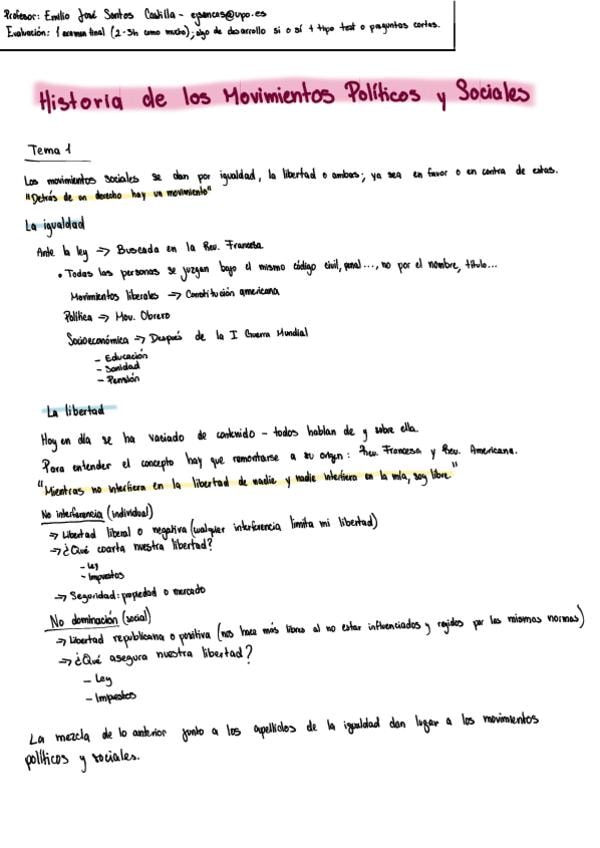 Profesor: Emilio José Santos Castilla - ejsancas@upo.es
Evaluación: 1 examen final (2-3h como mucho); algo de desarrollo si o sí + tipo test o preguntas cortas.
Historia de los Movimientos Políticos y Sociales
Tema 1
Los movimientos sociales se dan por igualdad, la libertad o ambas; ya sea en favor o en contra de estas.
"Detrás de un derecho hay un movimiento"
La igualdad
Ante la ley => Buscada en la Rev. Francesa
• Todas las personas se juzgan bajo el mismo código civil, penal..., no por el nombre, título...
Movimientos liberales => Constitución americana
Política => Mov. Obrero
Socioeconómica => Después de la I Guerra Mundial
- Educación
- Sanidad
- Pensión
La libertad
Hoy en día se ha vaciado de contenido - todos hablan de y sobre ella.
Para entender el concepto hay que remontarse a su origen: Rev. Francesa y Rev. Americana.
"Mientras no interfiera en la libertad de nadie y nadie interfiera en la mía, soy libre."
No interferencia (individual)
=> Libertad liberal o negativa (cualquier interferencia limita mi libertad)
=> ¿Qué coarta nuestra libertad?
- Ley
- Impuestos
=> Seguridad: propiedad o mercado
No dominación (social)
=> Libertad republicana o positiva (nos hace más libres al no estar influenciados y regidos por las mismas normas)
=> ¿Qué asegura nuestra libertad?
- Ley
- Impuestos
La mezcla de lo anterior junto a los apellidos de la igualdad dan lugar a los movimientos
políticos y sociales.